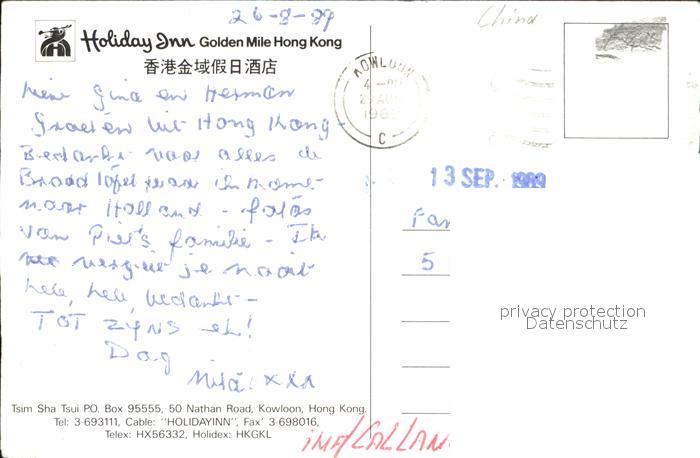 26-8-89
China
Holiday Inn Golden Mile Hong Kong
香港金域假日酒店
KOWLOON
C
Gina en Herman
Groeten uit Hong Kong -
Bedankt voor alles de
naar Holland - foto's
van Piet's familie - Ik
vergeet je nooit
hele, hele, bedankt -
TOT ZIENS eh!
Dag
xxx
13 SEP. 1989
Fam
5
privacy protection
Datenschutz
Tsim Sha Tsui P.O. Box 95555, 50 Nathan Road, Kowloon, Hong Kong.
Tel: 3-693111, Cable: "HOLIDAYINN", Fax' 3-698016,
Telex: HX56332, Holidex: HKGKL